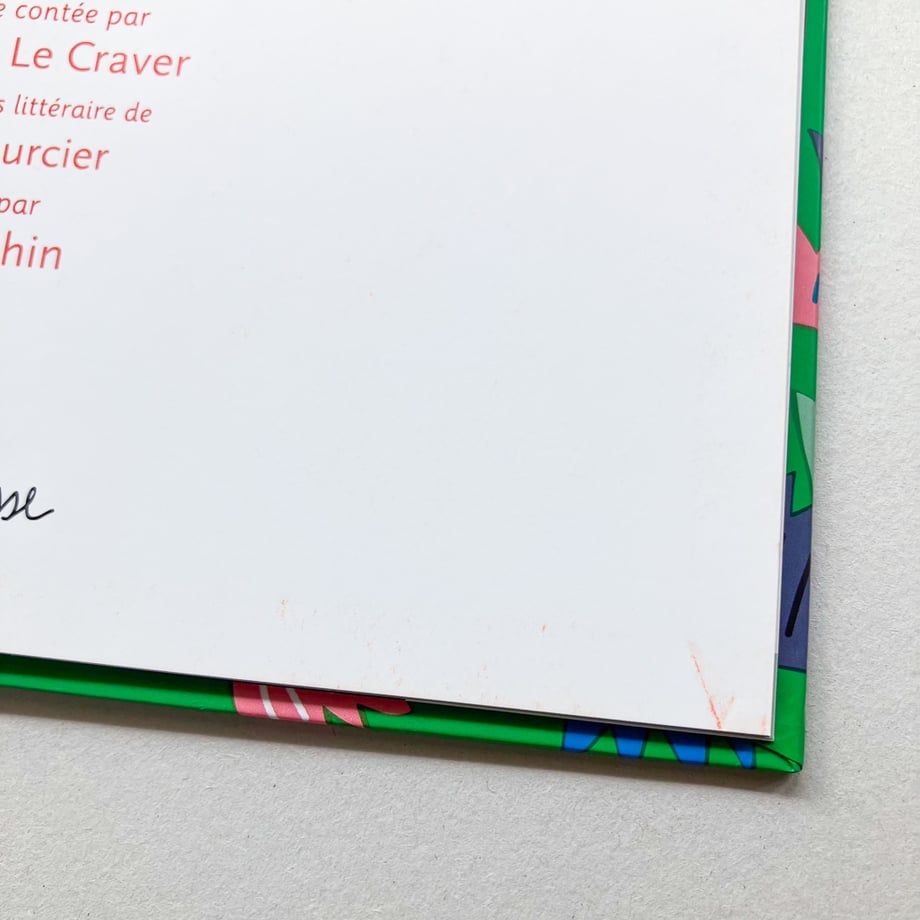 e contée par
Le Craver
s littéraire de
urcier
par
hin
sse